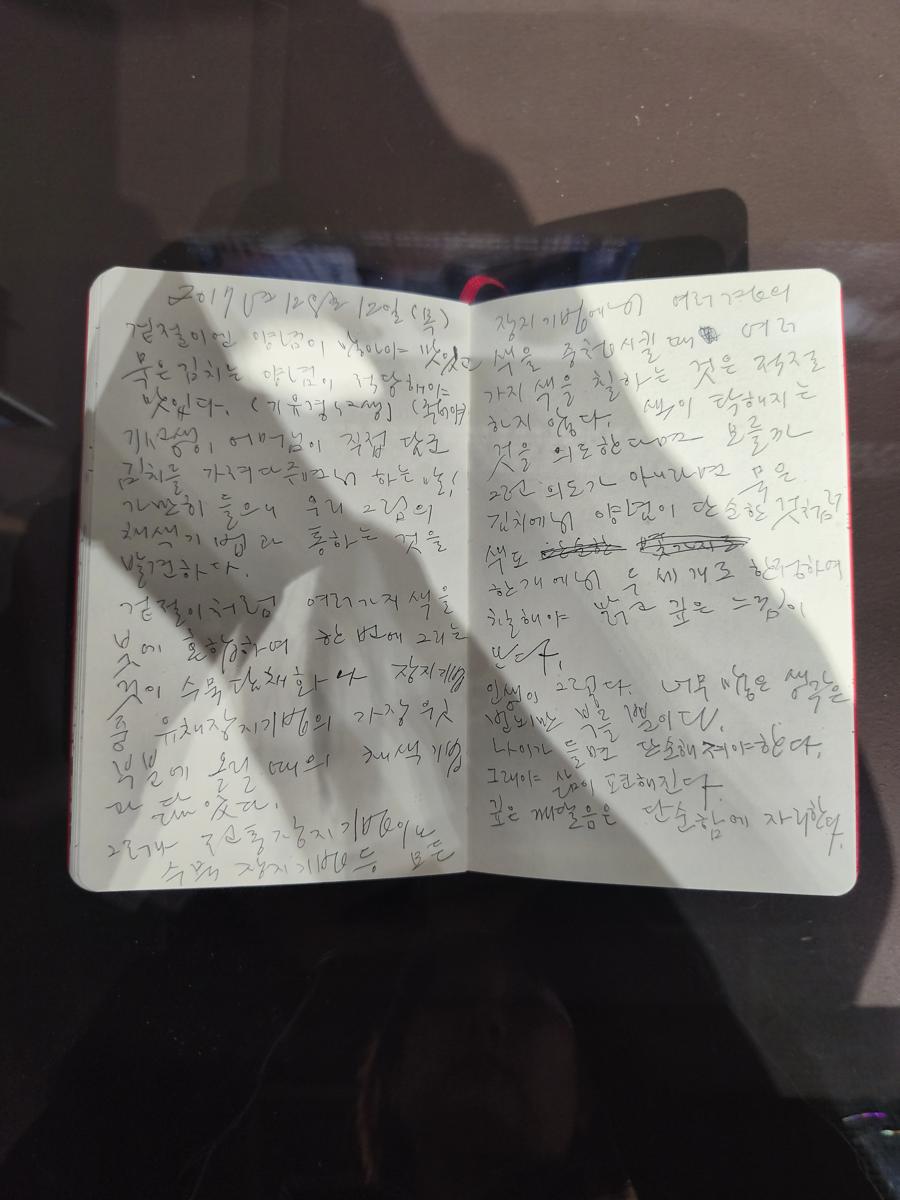 2017년 12월 12일 (목)
겉절이엔 양념이 많아야 맛있고
묵은김치는 양념이 적당해야
맛있다. (기유경 선생)
기선생이 어머님이 직접 담근
김치를 가져다주면서 하는 말,
가만히 들으니 우리 그림의
채색기법과 통하는 것을
발견하다.
겉절이처럼 여러가지 색을
붓에 혼합하여 한 번에 그리는
것이 수묵담채화나 장지기법
중 유채장지기법의 가장 윗
부분에 올릴 때의 채색기법
과 닮았다.
그러나 장지기법이나
수묵 장지기법 등 모든
장지기법에서 여러 겹의
색을 중첩시킬 때 여러
가지 색을 칠하는 것은 적절
하지 않다. 색이 탁해지는
것을 의도한다면 모를까
그런 의도가 아니라면 묵은
김치에서 양념이 단순한 것처럼
색도
한개에서 두 세개로 한정하여
칠해야 맑고 깊은 느낌이
든다.
인생이 그렇다. 너무 많은 생각은
번뇌만 부를 뿐이다.
나이가 들면 단순해져야한다.
그래야 삶이 편해진다.
깊은 깨달음은 단순함에 자리한다.